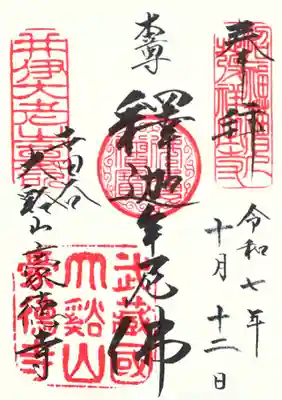 奉拝
本尊
釋迦牟尼佛
令和七年
十月十二日
世田谷
大谿山豪徳寺
武藏國
大谿山
豪徳寺